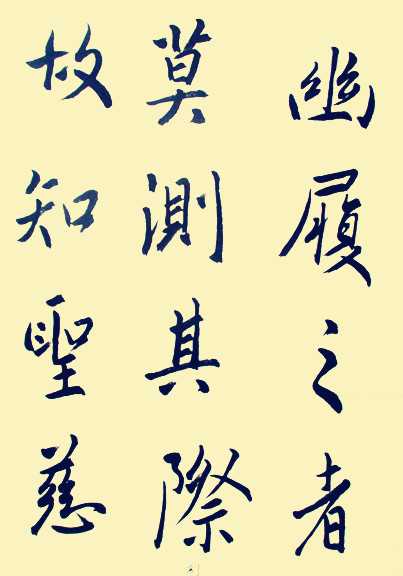 幽履之者
莫測其際
故知聖慈